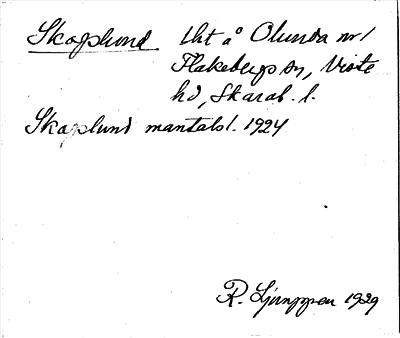 Skoglund lht å Olunda nr 1
Flakebergs sn, Viste
hd, Skarab. l.
Skoglund mantalsl. 1924
R. Ljunggren 1929